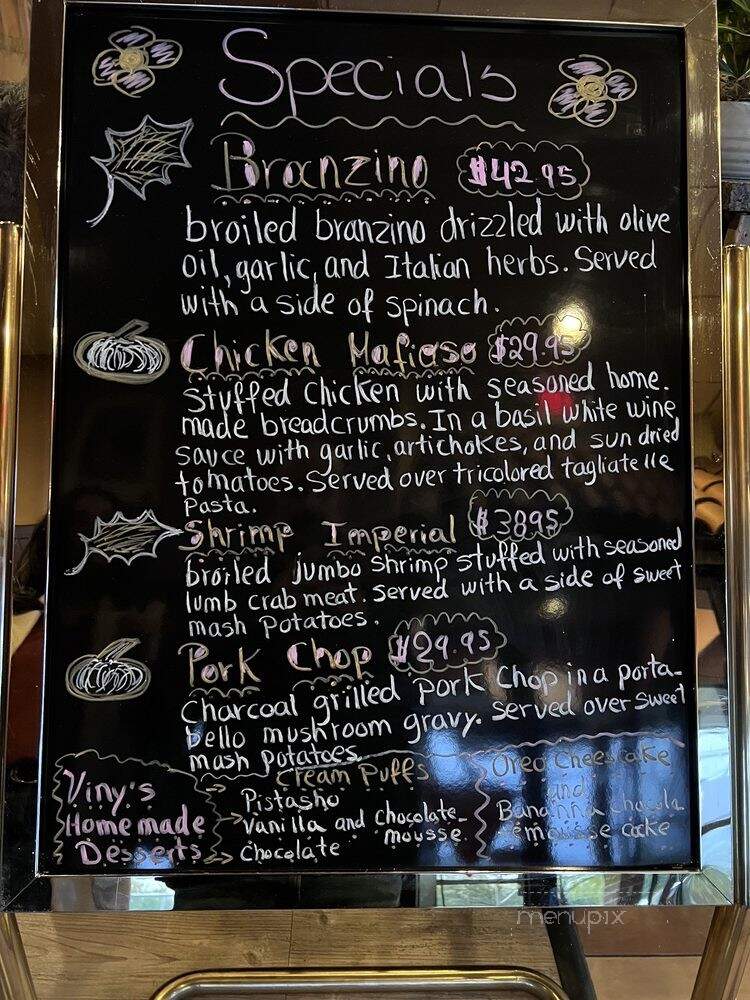 Specials
Branzino $42.95
broiled branzino drizzled with olive
oil, garlic, and Italian herbs. Served
with a side of spinach.
Chicken Mafioso $29.95
Stuffed Chicken with seasoned home-
made breadcrumbs. In a basil white wine
sauce with garlic, artichokes, and sun dried
tomatoes. Served over tricolored tagliatelle
Pasta.
Shrimp Imperial $38.95
broiled jumbo shrimp stuffed with seasoned
lumb crab meat. Served with a side of sweet
mash Potatoes.
Pork Chop $29.95
Charcoal grilled Pork Chop in a porta-
bello mushroom gravy. Served over sweet
mash potatoes.
Viny's
Homemade
Desserts
Cream Puffs
Pistasho
Vanilla and chocolate
mousse
Chocolate
Oreo Cheescake
and
Bananna chocola
-emousse cake
menupix